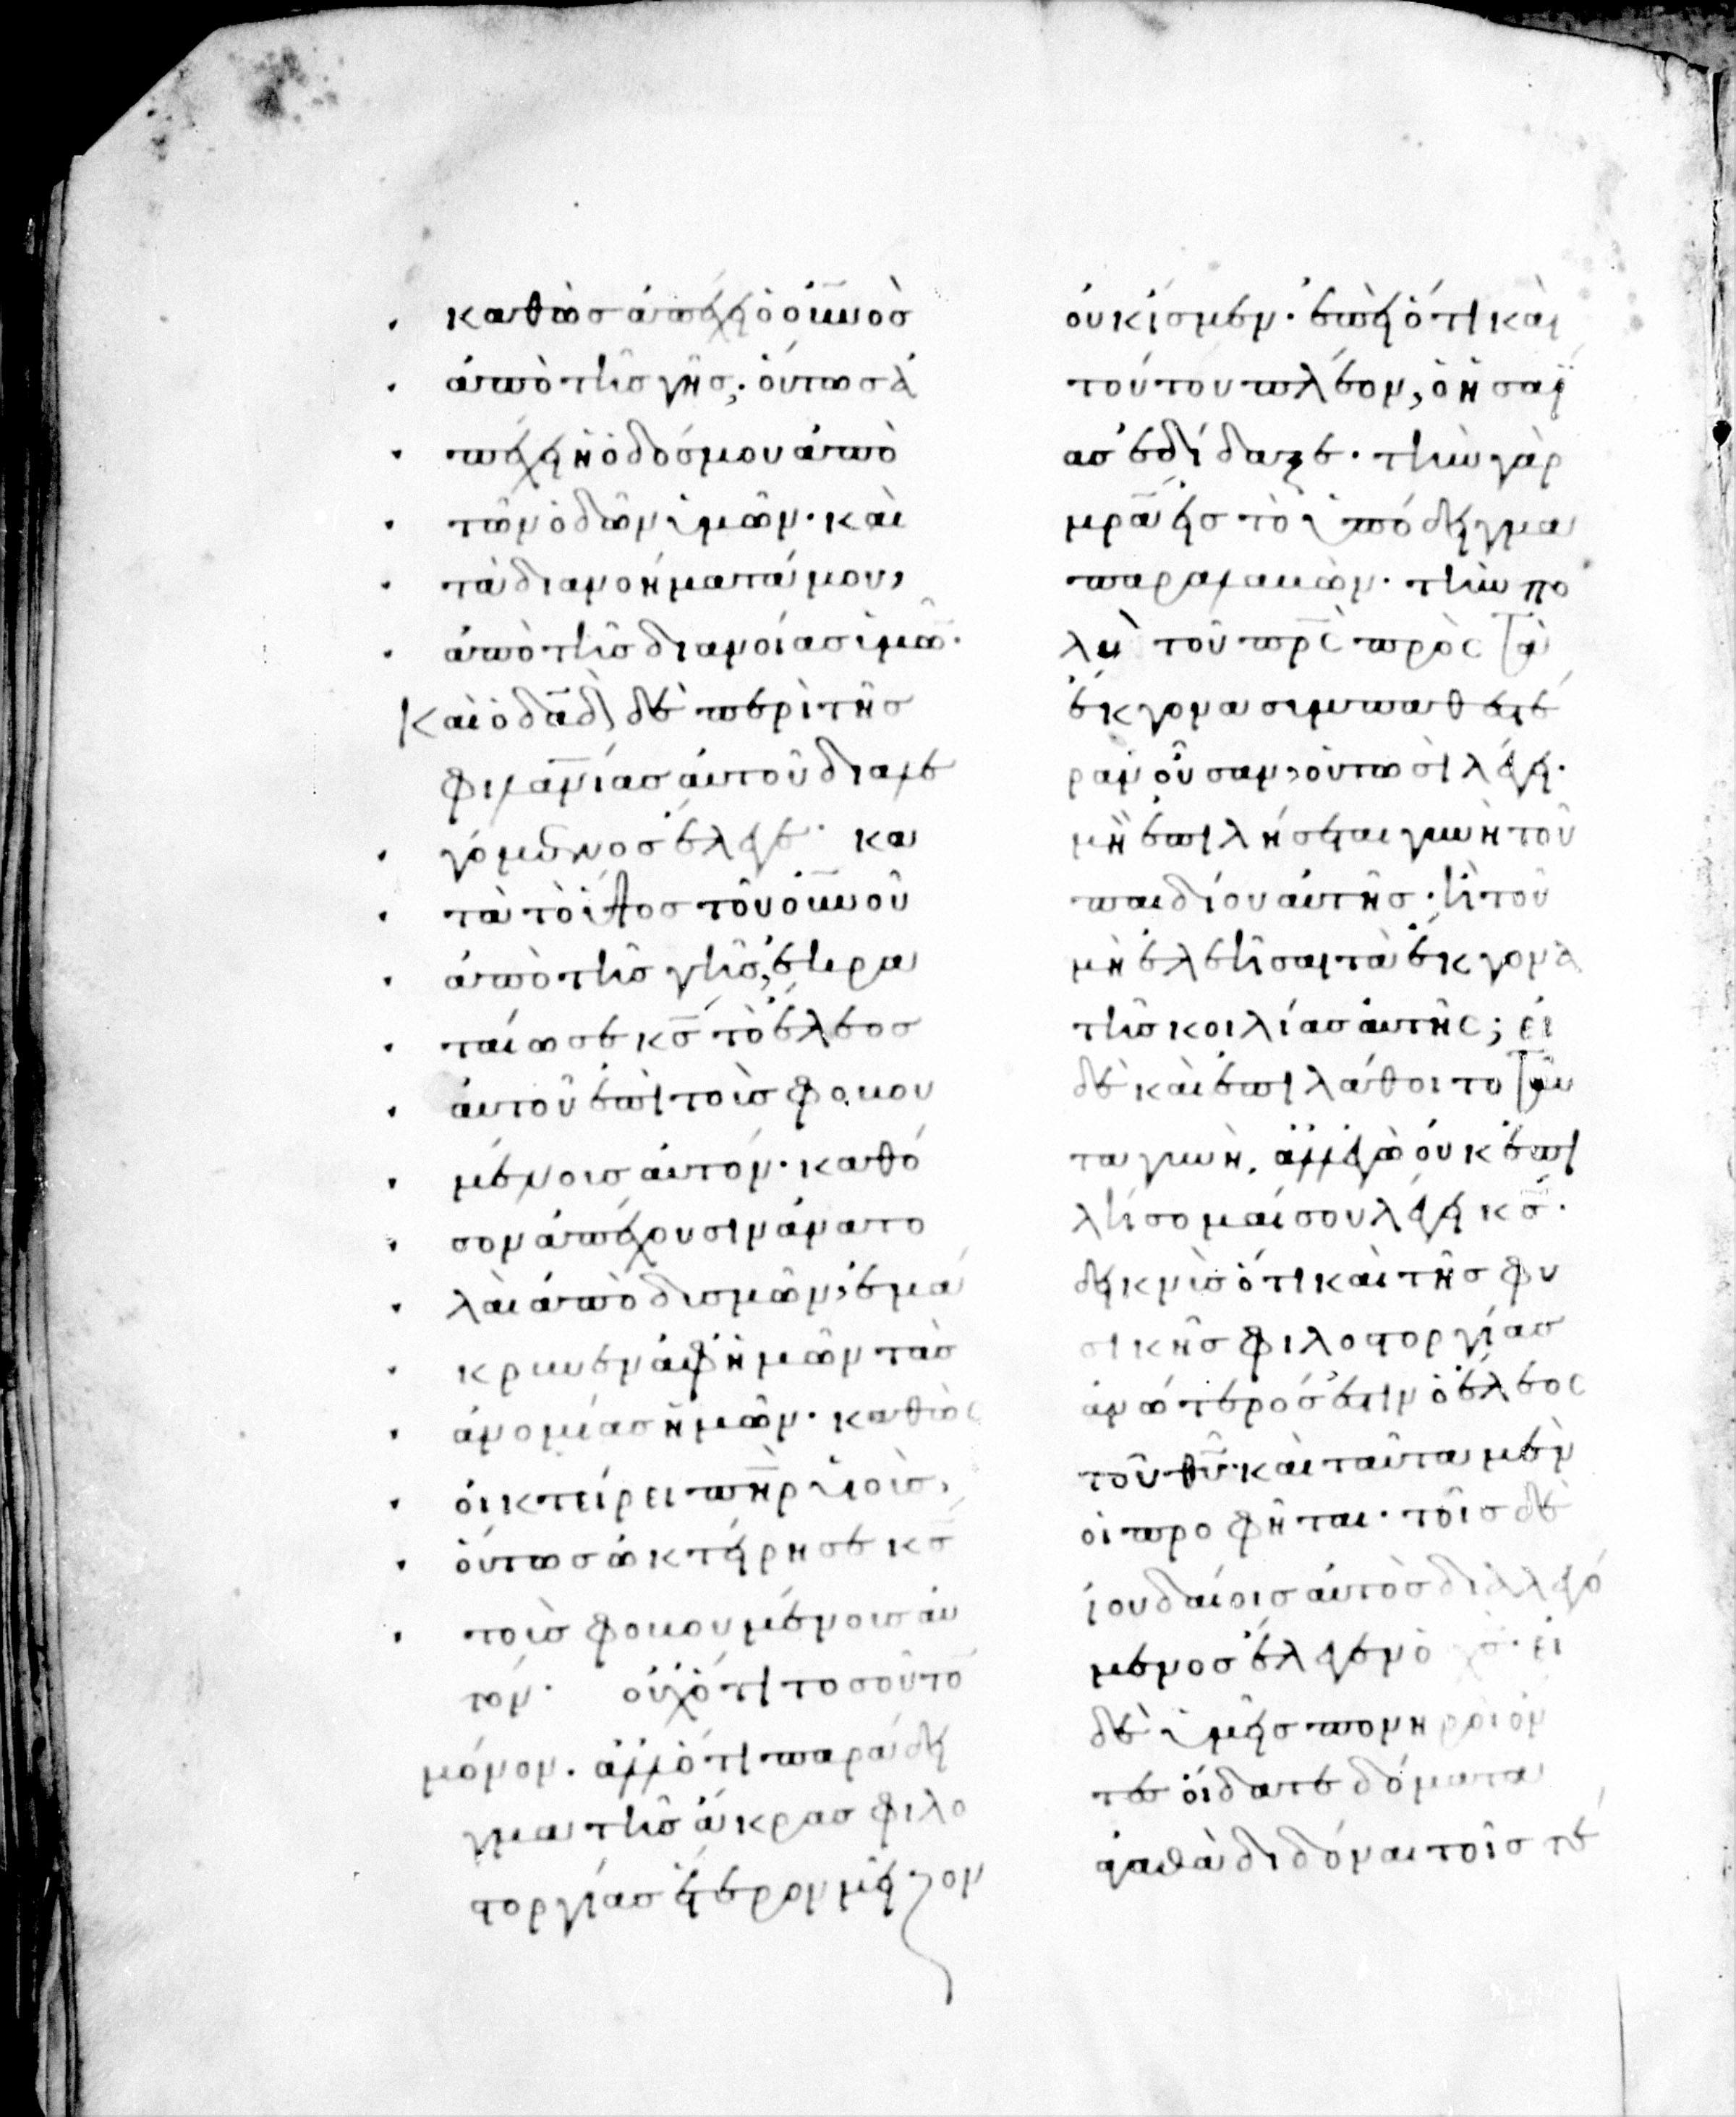 καθὼσ ἀπέχει ὁ οὐ̅νοσ
ἀπὸ τῆσ γῆσ· οὕτωσ ἀ
πέχει ἡ ὁδόσ μου ἀπὸ
τῶν ὁδῶν ὑμῶν· καὶ
τὰ διανοήματά μου,
ἀπὸ τῆσ διανοίασ ὑμῶ̅·
Καὶ ὁ δα̅δ δὲ περὶ τῆσ
φιλα̅νίασ αὐτοῦ διαλε
γόμενοσ ἔλεγε· κα
τὰ τὸ ὕψοσ τοῦ οὐ̅νοῦ
ἀπὸ τῆσ γῆσ, ἐστερέ
ωσε κ̅σ τὸ ἔλεοσ
αὐτοῦ ἐπὶ τοὺσ φοβου
μένουσ αὐτόν· καθό
σον ἀπέχουσιν ἀνατο
λαὶ ἀπὸ δυσμῶν, ἐμά
κρυνεν ἀφ ἡμῶν τὰσ
ἀνομίασ ἡμῶν· καθὼσ
οἰκτείρει πη̅ρ υἱοὺσ,
οὕτωσ ὠκτείρησε κ̅σ
τοὺσ φοβουμένουσ αὐ
τόν· οὐχ ὅτι τοσοῦτο̅
μόνον· ἀλλ ὅτι παράδει
γμα τῆσ ἄκρασ φιλο
στοργίασ ἕτερον μεῖζον
οὐκ ἴσμεν· ἐπεὶ ὅτι καὶ
τούτου πλέον, ὁ ἡσαΐ
ασ ἐδίδαξε· τὴν γὰρ
μρ̅α εἰσ τὸ ὑπόδειγμα
παραλαβὼν· τὴν πο
λὺ τοῦ πρ̅σ πρὸσ τὰ
ἔκγονα συμπαθεστέ
ραν οὖσαν, οὕτωσὶ λέγει·
μὴ ἐπιλήσεται γυνὴ τοῦ
παιδίου αὐτῆσ· ἢ τοῦ
μὴ ἐλεῆσαι τὰ ἔκγονα
τῆσ κοιλίασ αὐτῆσ; εἰ
δὲ καὶ ἐπιλάθοιτο ταῦ
τα γυνὴ, ἀλλ ἐγὼ οὐκ ἐπι
λήσομαί σου λέγει κ̅σ·
δεικνὺσ ὅτι καὶ τῆσ φυ
σικῆσ φιλοστοργίασ
ἀνώτερόσ ἐστιν ὁ ἔλεοσ
τοῦ θ̅υ· καὶ ταῦτα μὲν
οἱ προφῆται· τοῖσ δὲ
ἰουδαίοισ αὐτὸσ διαλεγό
μενοσ ἔλεγεν ὁ χ̅σ· εἰ
δὲ ὑμεῖσ πονηροὶ ὄν
τεσ οἴδατε δόματα
ἀγαθὰ διδόναι τοῖσ τέ